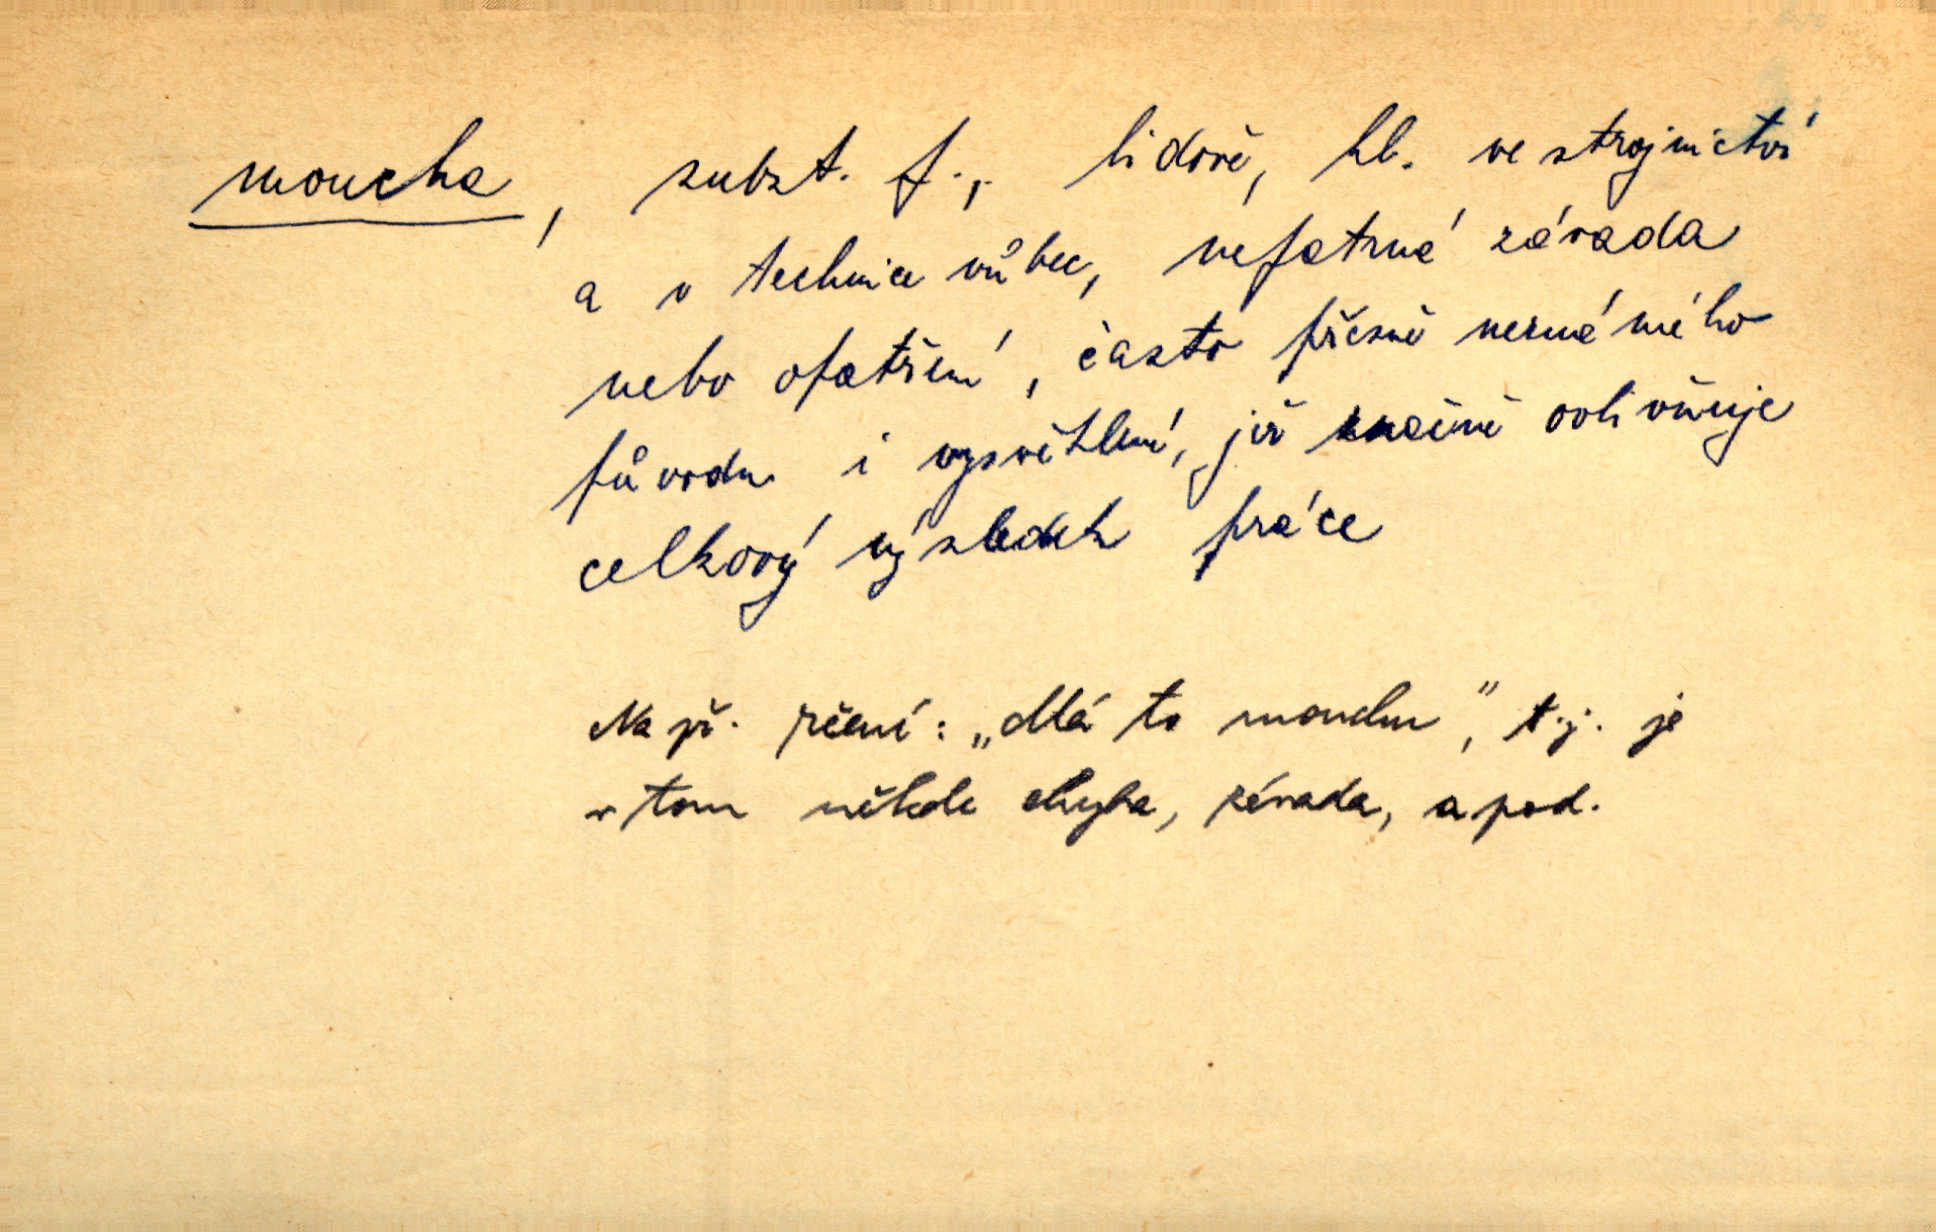 moucha, subst. f., lidově, hl. ve strojnictví
a v technice vůbec, nepatrná závada
nebo opatření, často přesně neznámého
původu i vysvětlení, jež značně ovlivňuje
celkový výsledek práce
Např. rčení: „Má to mouchu", t.j. je
v tom někde chyba, závada, a pod.